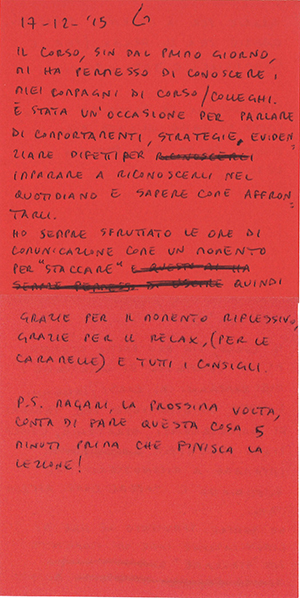 17-12-'15
IL CORSO, SIN DAL PRIMO GIORNO,
MI HA PERMESSO DI CONOSCERE I
MIEI COMPAGNI DI CORSO/COLLEGHI.
È STATA UN'OCCASIONE PER PARLARE
DI COMPORTAMENTI, STRATEGIE, EVIDEN-
ZIARE DIFETTI PER RICONOSCERLI
IMPARARE A RICONOSCERLI NEL
QUOTIDIANO E SAPERE COME AFFRON-
TARLI.
HO SEMPRE SFRUTTATO LE ORE DI
COMUNICAZIONE COME UN MOMENTO
PER "STACCARE" E QUESTO MI HA
SEMPRE PERMESSO DI ESSERE QUINDI
GRAZIE PER IL MOMENTO RIFLESSIVO,
GRAZIE PER IL RELAX, (PER LE
CARAMELLE) E TUTTI I CONSIGLI.
P.S. MAGARI, LA PROSSIMA VOLTA,
CONTA DI FARE QUESTA COSA 5
MINUTI PRIMA CHE FINISCA LA
LEZIONE!